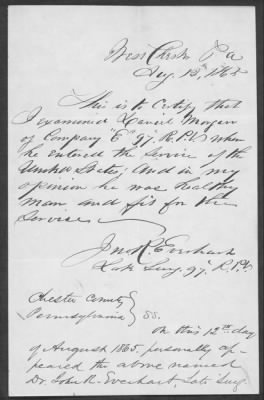 West Chester Pa
Aug. 12th 1865
This is to Certify that
I examined Daniel Morgan
of Company "E" 97" R. P. V. when
he entered the Service of the
United States; And in my
opinion he was healthy
man and fit for the
Service
Jno R. Everhart
Late Surg. 97" R. P. V.
Chester County
Pennsylvania } SS.
On this 12th day
of August 1865, personally ap-
peared the above named
Dr. John R. Everhart, Late Surg.